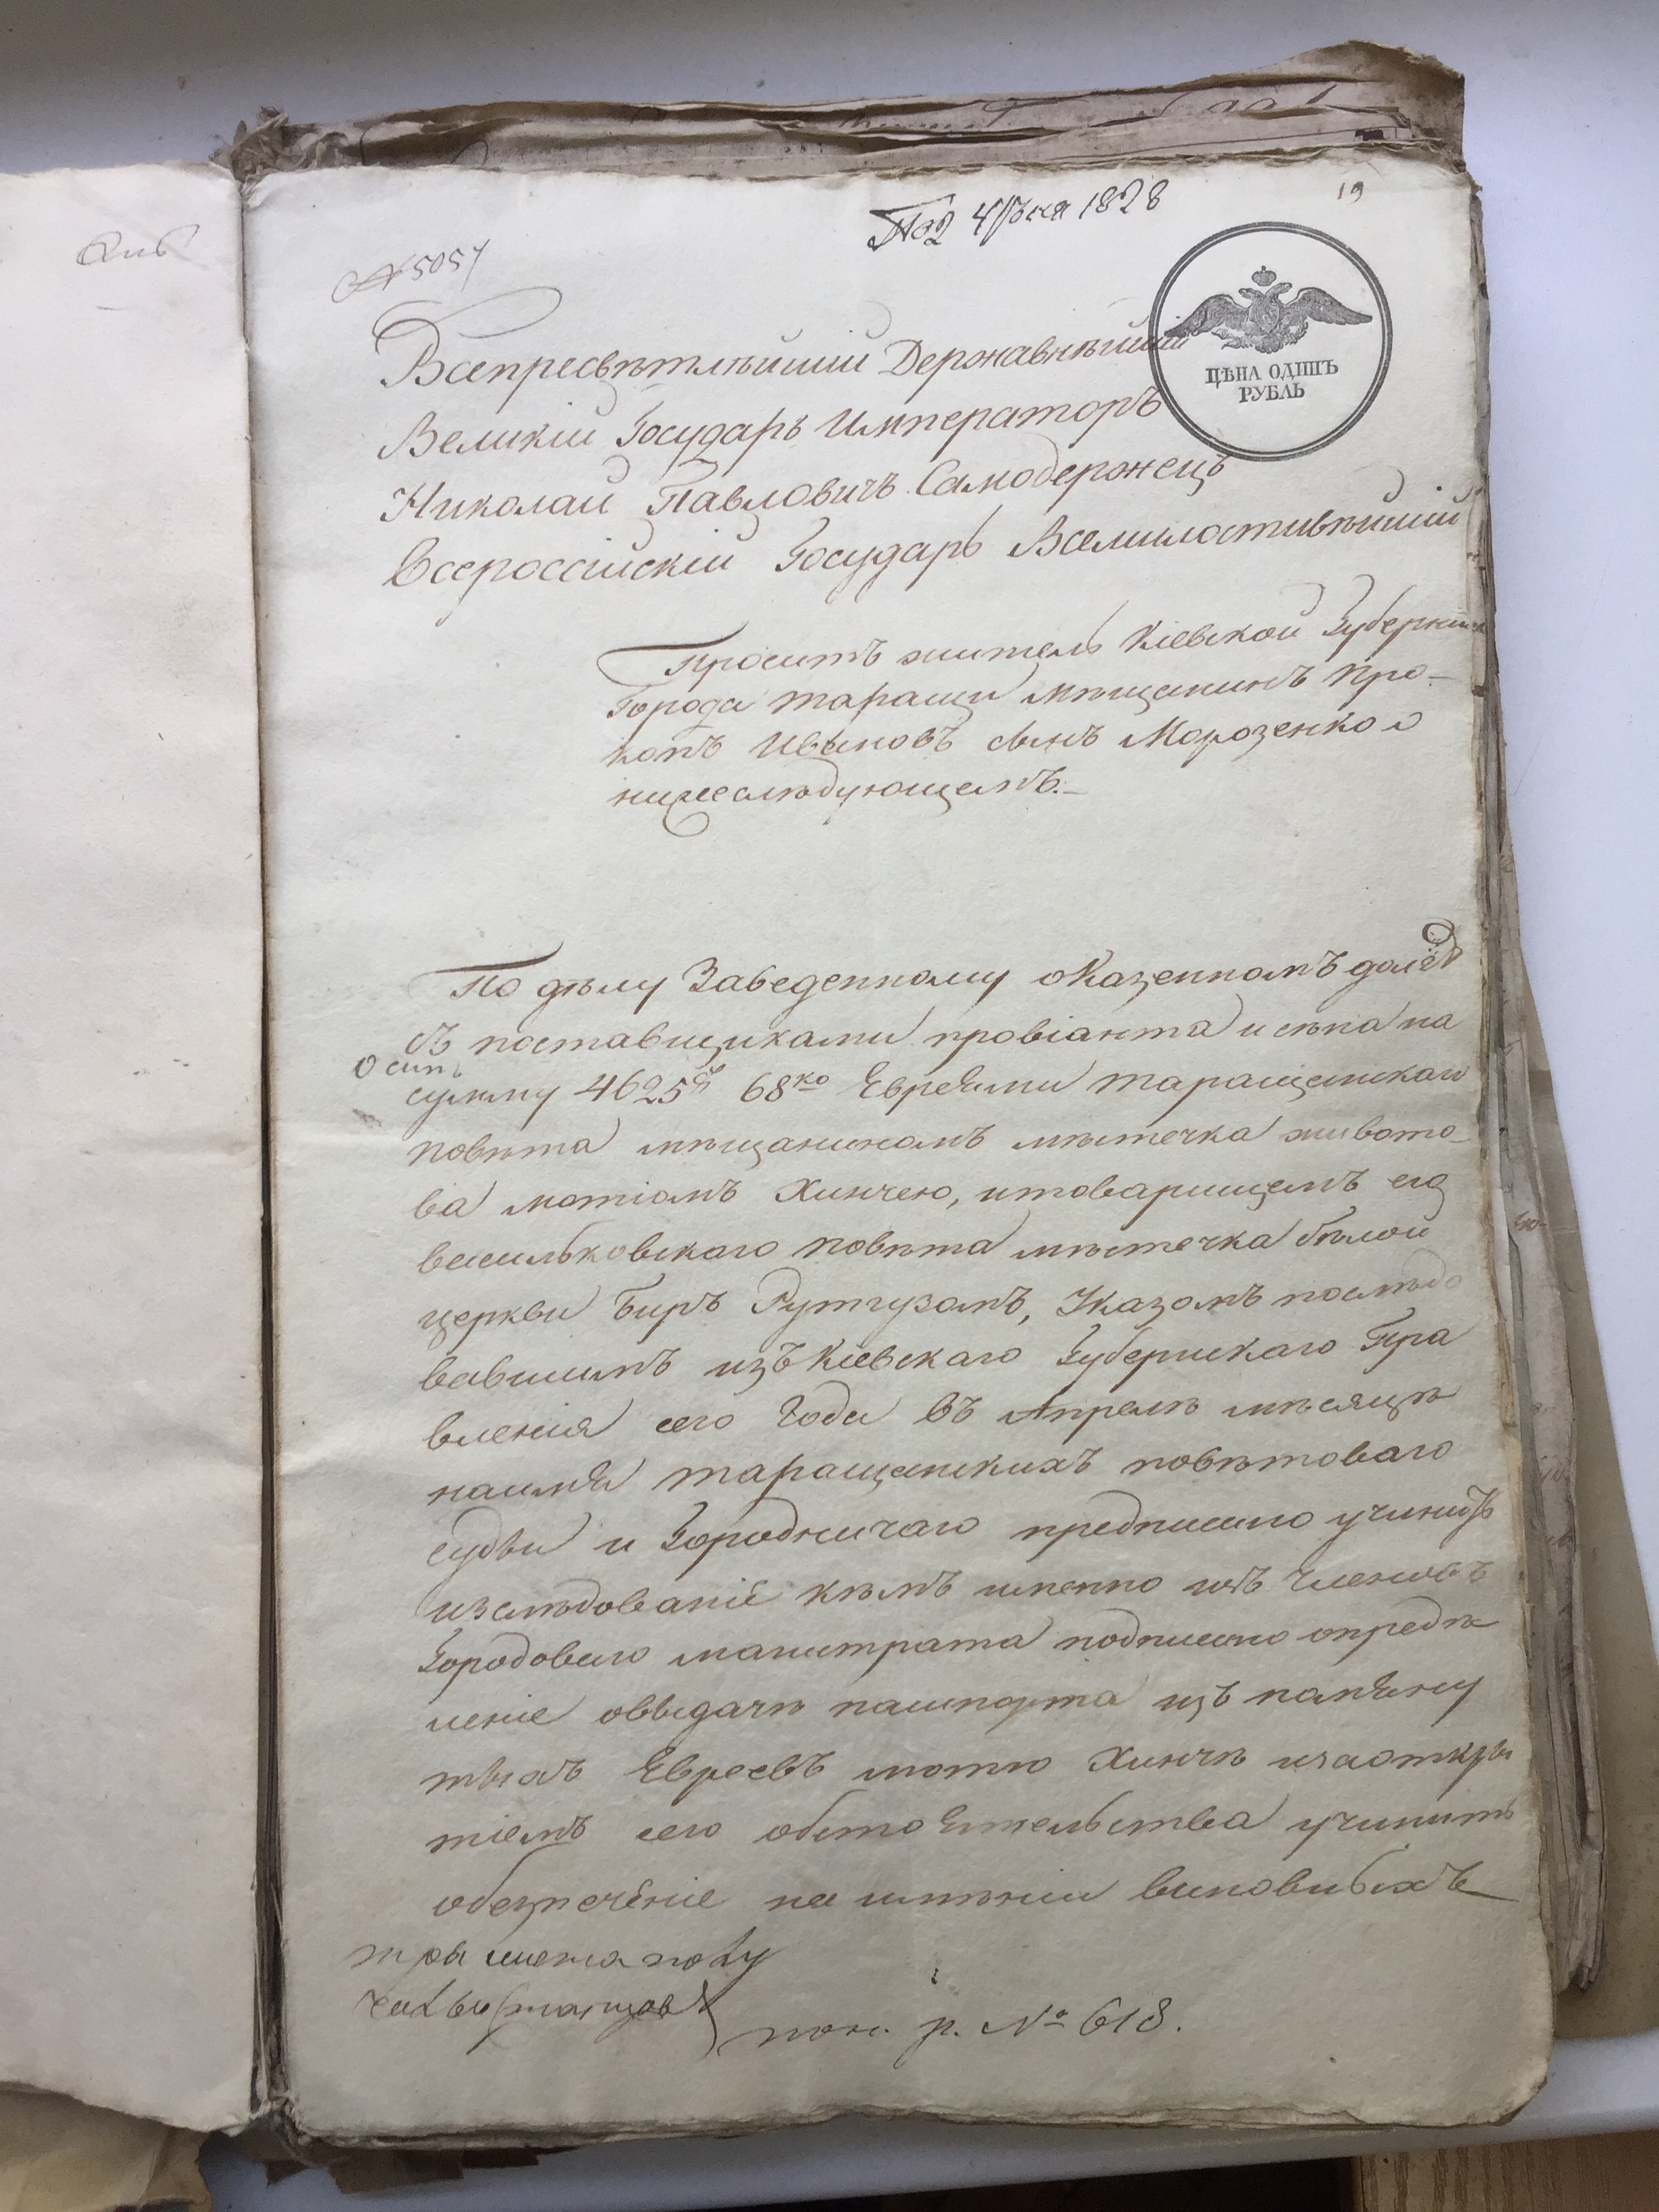 19
Под 4 Іюня 1828
№ 5054
ЦѢНА ОДИНЪ
РУБЛЬ
Всепресвѣтлѣйшій Державнѣйшій
Великій Государь Императоръ
Николай Павловичъ Самодержецъ
Всероссійскій Государь Всемилостивѣйшій
Проситъ житель Кіевской Губерніи
Города таращи мѣщанинъ Про-
копъ Ивановъ сынъ Морозенко о
нижеслѣдующемъ.-
По дѣлу Заведенному оказенномъ долгѣ
съ поставщиками провіанта и сѣна на
сумму 4625 р 68 ко Евреями таращанскаго
повѣта мѣщаниномъ мѣстечка живото-
ва мотіомъ Хинчею, итоварищемъ его
васильковскаго повѣта мѣстечка бѣлой
церкви Биръ Рутгузомъ, Указомъ послѣдо
вавшимъ изъ Кіевскаго Губернскаго Пра
вленія сего Года въ Апрелѣ мѣсяцѣ
наимя таращанскихъ повѣтоваго
судьи и Городничаго предписано учинить
изслѣдованіе кѣмъ именно изъ Членовъ
Городоваго магистрата подписано опредѣ
леніе овыдачѣ пашпорта изъ помяну
тыхъ Евреевъ мотю Хинчѣ изаоткры
тіемъ сего обстоятельства учинить
обезпеченіе на имѣніи виновныхъ
пон. р. № 618.